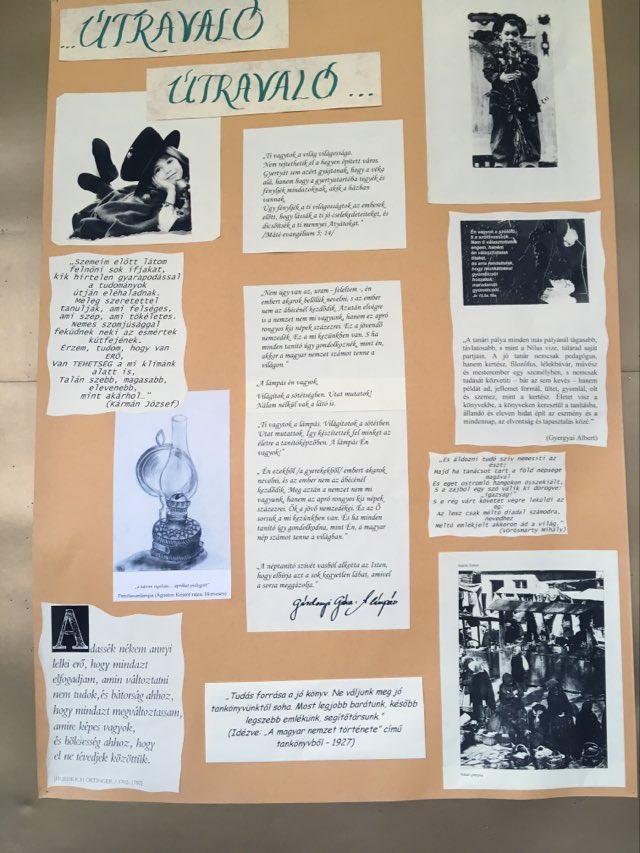 ...ÚTRAVALÓ
ÚTRAVALÓ...
„Ti vagytok a világ világossága.
Nem rejtethetik el a hegyen épített város.
Gyertyát sem azért gyújtanak, hogy a véka
alá, hanem hogy a gyertyatartóba tegyék és
fényljék mindazoknak, akik a házban
vannak.
Úgy fényljék a ti világosságtok az emberek
előtt, hogy lássák a ti jó cselekedeteiteket, és
dicsőítsék a ti mennyei Atyátokat."
/Máté evangélium 5; 14/
„Szemeim előtt látom
felnőni sok ifjakat,
kik hirtelen gyarapodással
a tudományok
útján eléhaladnak.
Meleg szeretettel
tanulják, ami felséges,
ami szép, ami tökéletes.
Nemes szomjúsággal
feküdnek neki az esmértek
kútfejének.
Érzem, tudom, hogy van
ERŐ,
Van TEHETSÉG a mi klimánk
alatt is,
Talán szebb, magasabb,
elevenebb,
mint akárhol…"
(Kármán József)
„Nem úgy van az, uram - feleltem -, én
embert akarok belőlük nevelni, s az ember
nem az ábécénél kezdődik. Azután elvégre
is a nemzet nem mi vagyunk, hanem ez apró
rongyos kis népek százezrei. Ez a jövendő
nemzedék. Ez a mi kezünkben van. S ha
minden tanító úgy gondolkoznék, mint én,
akkor a magyar nemzet számot tenne a
világon."
A lámpás én vagyok.
Világítok a sötétségben. Utat mutatok!
Nálam nélkül vak a látó is.
„Ti vagytok a lámpás. Világítotok a sötétben.
Utat mutattok. Így készítettek fel minket az
életre a tanítóképzőben. A lámpás Én
vagyok!"
„ Én ezekből /a gyerekekből/ embert akarok
nevelni, és az ember nem az ábécénél
kezdődik. Meg aztán a nemzet nem mi
vagyunk, hanem az apró rongyos kis népek
százezrei. Ők a jövő nemzedéke. Ez az Ő
sorsuk a mi kezünkben van. És ha minden
tanító így gondolkodna, mint Én, a magyar
nép számot tenne a világban."
„A néptanító szívét vasból alkotta az Isten,
hogy elbírja azt a sok kegyetlen lábat, amivel
a sorsa meggázolja."
Gárdonyi Géza: A lámpás
Én vagyok a szőlőtő,
ti a szőlővesszők...
Nem ti választottatok
engem, hanem
én választottalak
titeket,
és arra rendeltelek,
hogy
gyümölcsöt
hozzatok;
gyümölcsötök
„A tanári pálya minden más pályánál tágasabb,
távlatosabb, s mint a Nílus vize, túlárad saját
partjain. A jó tanár nemcsak pedagógus,
hanem kertész, filozófus, lélekbúvár, művész
és mesterember egy személyben, s nemcsak
tudását közvetíti – bár az sem kevés – hanem
példát ad, jellemet formál, ültet, gyomlál, olt
és szemez, mint a kertész. Életet visz a
könyvekbe, a könyveken keresztül a tanításba,
állandó és eleven hidat épít az eszmény és a
mindennap, az elvontság és tapasztalás közé."
(Gyergyai Albert)
„Es áldozni tudó szív nemesíti az
észt;
Majd ha tanácsot tart a föld népsége
magával
És eget ostromló hangokon összekiált,
S a zajból egy szó válik ki dörögve:
„igazság!"
S e rég várt követet végre leküldi az
ég:
Az lesz csak méltó diadal számodra,
nevedhez
Méltó emlékjelt akkoron ád a világ."
(Vörösmarty Mihály)
Petróleumlámpa (Ágoston Kristóf rajza, 14 évesen)
Adassék nékem annyi
lelki erő, hogy mindazt
elfogadjam, amin változtatni
nem tudok, és bátorság ahhoz,
hogy mindazt megváltoztassam,
amire képes vagyok,
és bölcsesség ahhoz, hogy
el ne tévedjek közöttük.
(FRIEDRICH OETINGER / 1702-1782)
„Tudás forrása a jó könyv. Ne váljunk meg jó
tankönyvünktől soha. Most legjobb barátunk, később
legszebb emlékünk, segítőtársunk."
(Idézve: „A magyar nemzet története" című
tankönyvből - 1927)